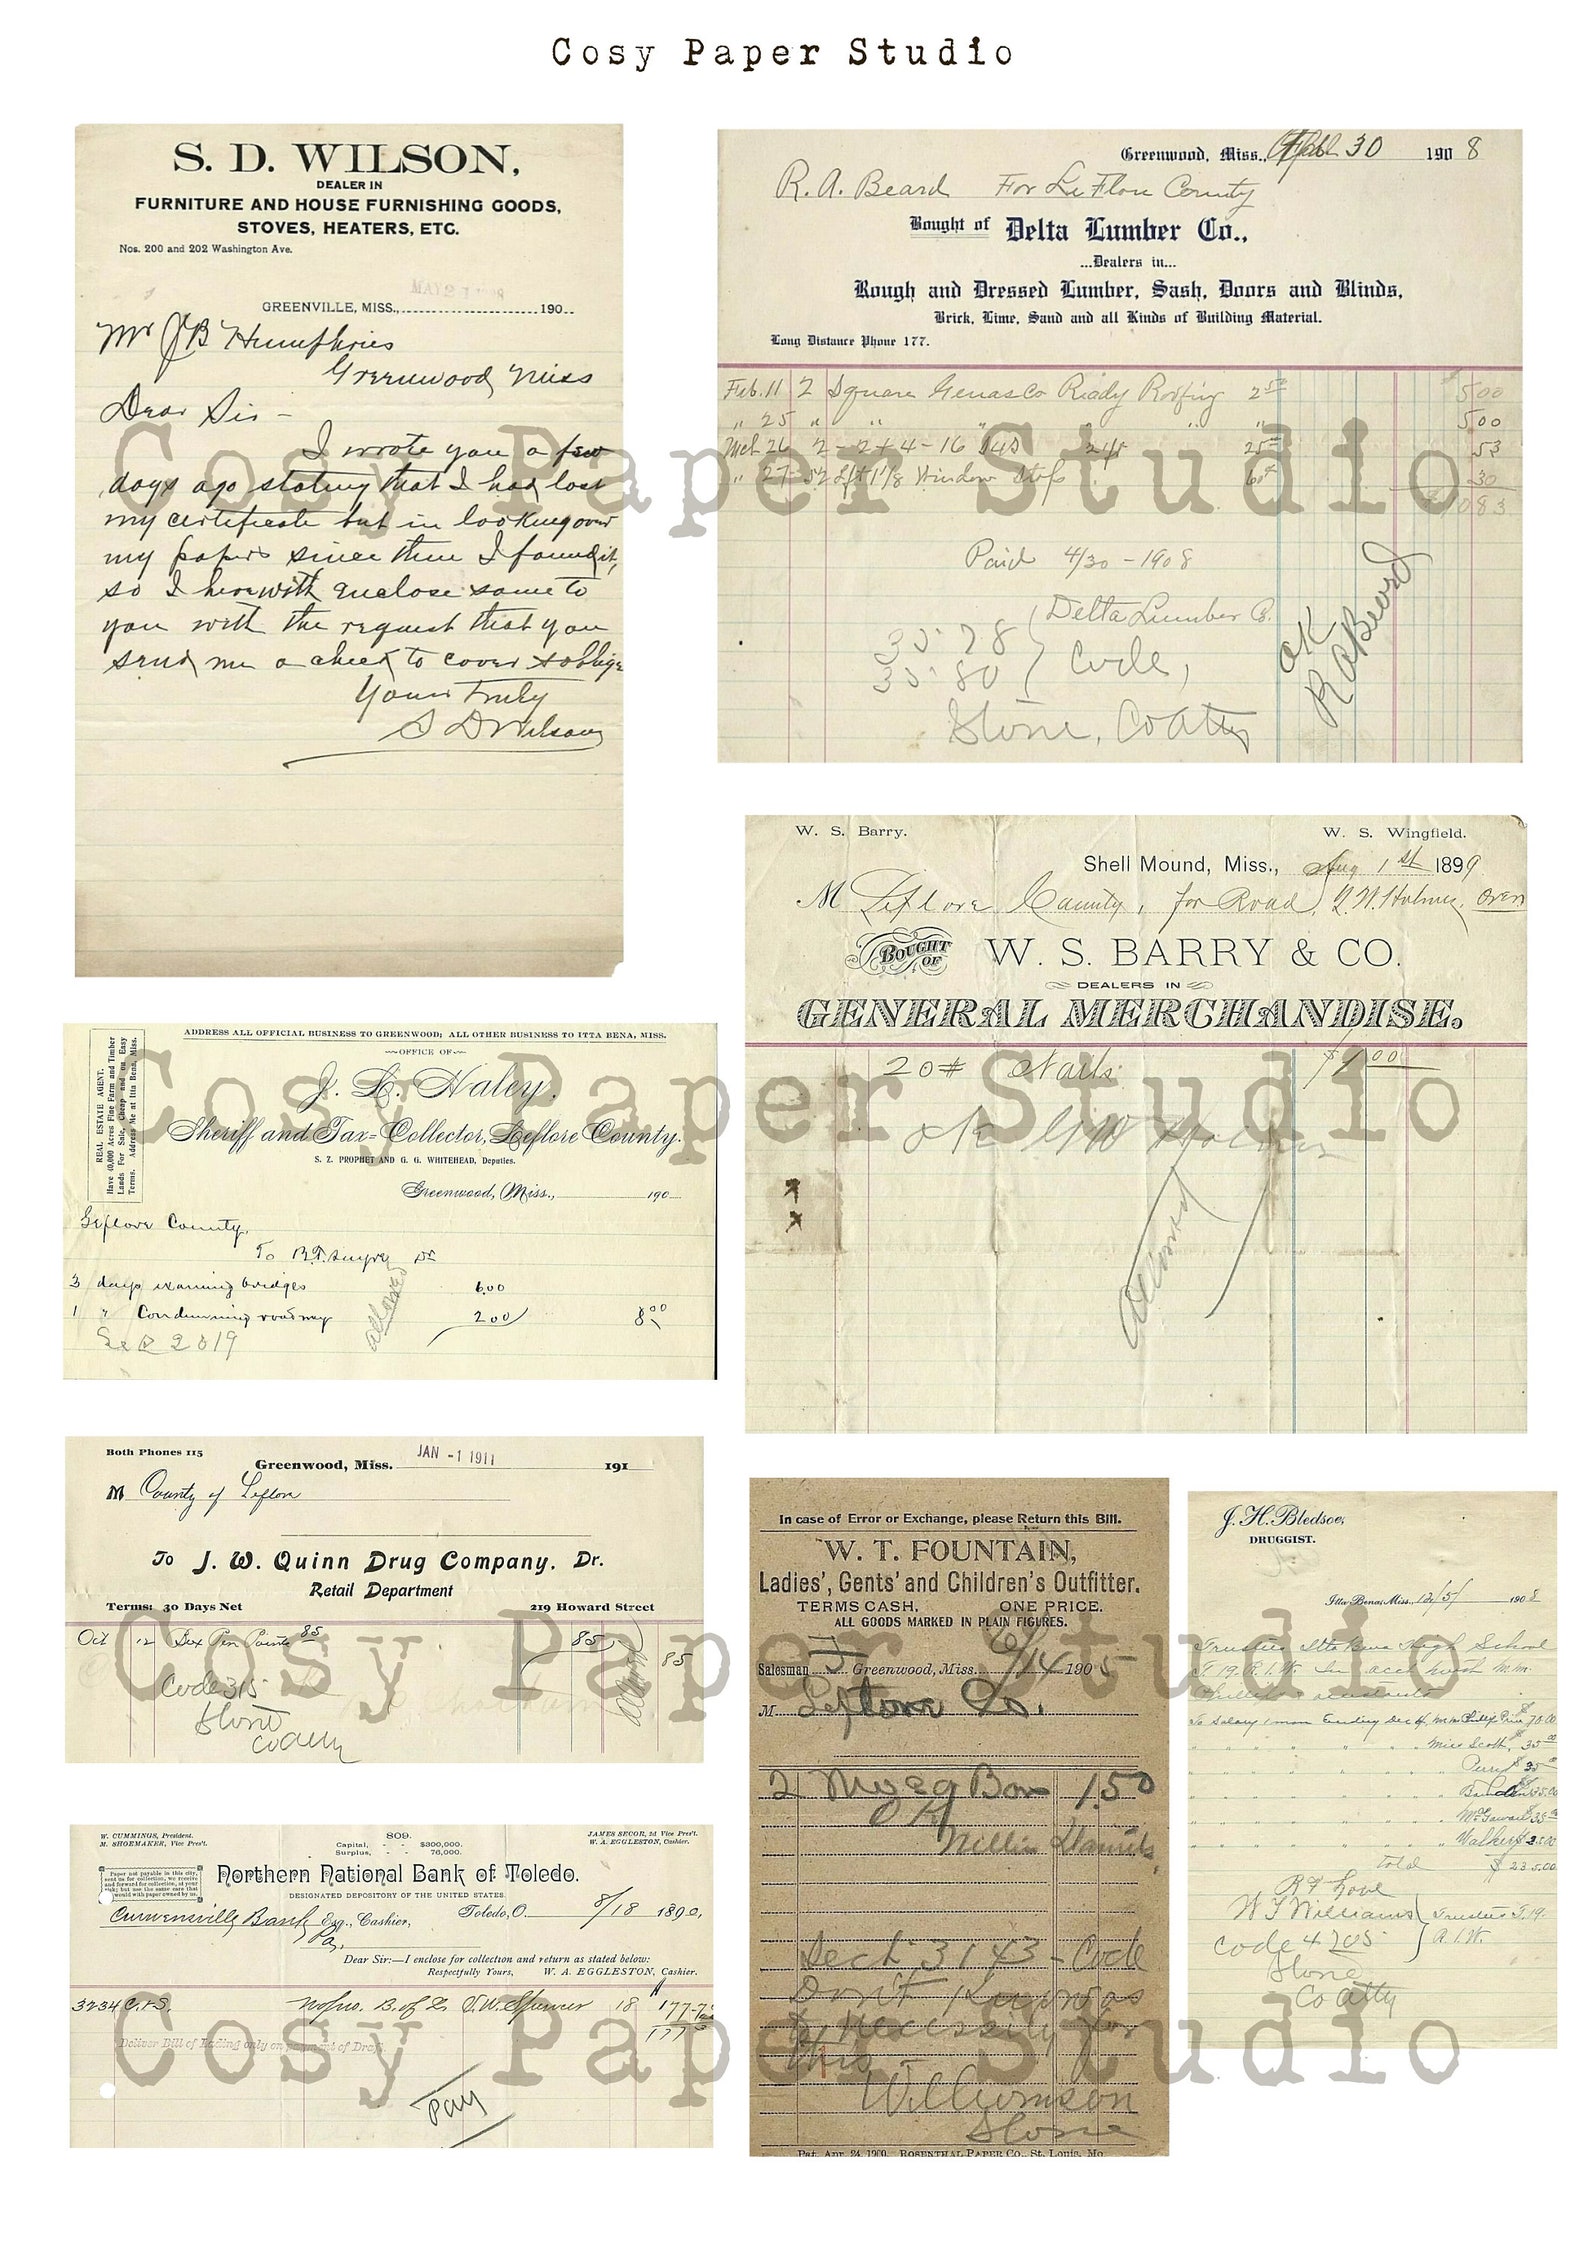 Cosy Paper Studio
S. D. WILSON,
DEALER IN
FURNITURE AND HOUSE FURNISHING GOODS,
STOVES, HEATERS, ETC.
Nos. 200 and 202 Washington Ave.
GREENVILLE, MISS., 190
Mr J B Humphries
Greenwood, Miss
Dear Sir -
I wrote you a few
days ago stating that I had lost
my certificate but in looking over
my papers since then I found it,
so I herewith enclose same to
you with the request that you
send me a check to cover & oblige
Yours Truly
S D Wilson
Greenwood, Miss., April 30 1908
R. A. Beard For Le Flore County
Bought of Delta Lumber Co.,
...Dealers in...
Rough and Dressed Lumber, Sash, Doors and Blinds,
Brick, Lime, Sand and all Kinds of Building Material.
Long Distance Phone 177.
Feb. 11 2 Square Genasco Ready Roofing 2 50 5 00
" 25 " " " " " " 5 00
Mch 26 2 - 2 x 4 - 16 S4S 25 53
" 27 - 52 Window Stops 60 30
$10 83
Paid 4/30 - 1908
Delta Lumber Co.
Code,
Stone, Co Atty
OK
R A Beard
W. S. Barry. W. S. Wingfield.
Shell Mound, Miss., Aug 1st 1899
M Leflore County, for Road, G. W. Holmes, Over
BOUGHT OF W. S. BARRY & CO.
DEALERS IN
GENERAL MERCHANDISE.
20# Nails $1 00
OK G W Holmes
Allowed
ADDRESS ALL OFFICIAL BUSINESS TO GREENWOOD; ALL OTHER BUSINESS TO ITTA BENA, MISS.
REAL ESTATE AGENT.
Have 40,000 Acres Fine Farm and Timber
Lands For Sale, Cheap and on Easy
Terms. Address Me at Itta Bena, Miss.
OFFICE OF
J. L. Haley,
Sheriff and Tax-Collector, Leflore County.
S. Z. PROPHET AND G. G. WHITEHEAD, Deputies.
Greenwood, Miss., 190
Leflore County,
To Dr
3 days examining bridges 6.00
1 " Condemning roadway 2.00 8 00
allowed
Both Phones 115
Greenwood, Miss. JAN -1 1911 191
M County of Leflore
To J. W. Quinn Drug Company, Dr.
Retail Department
Terms: 30 Days Net 219 Howard Street
Oct 12 Box Pen Points 85 85 85
Code 315
Stone
Co Atty
allowed
In case of Error or Exchange, please Return this Bill.
W. T. FOUNTAIN,
Ladies', Gents' and Children's Outfitter.
TERMS CASH, ONE PRICE.
ALL GOODS MARKED IN PLAIN FIGURES.
Salesman F Greenwood, Miss. 6/14 1905
M Leflore Co.
2 1.50
OK
Sect 3143 - Code
Don't Know as
to necessity for
this -
Williamson
Stone
Pat. Apr. 24, 1900. ROSENTHAL PAPER CO., St. Louis, Mo.
J. H. Bledsoe,
DRUGGIST.
Itta Bena, Miss., 12/5/ 1908
Trustees Itta Bena High School
To Salary 1 mon Ending Dec 4, $70.00
Miss Scott, 35 00
Perry $35
$35.00
$35
Walker $35.00
total $235.00
R F Love
W T Williams Trustees T. 19.
Code 4205
Stone
Co Atty
W. CUMMINGS, President. 809. JAMES SECOR, 2d Vice Pres't.
M. SHOEMAKER, Vice Pres't. Capital, - - $300,000. W. A. EGGLESTON, Cashier.
Surplus, - - 76,000.
Paper not payable in this city,
sent us for collection, we receive
and forward for collection, at your
risk; but use the same care that
we would with paper owned by us.
Northern National Bank of Toledo.
DESIGNATED DEPOSITORY OF THE UNITED STATES.
Curwensville Bank Esq., Cashier, Toledo, O. 8/18 1890,
Pa,
Dear Sir:—I enclose for collection and return as stated below:
Respectfully Yours, W. A. EGGLESTON, Cashier.
3234 18
Deliver Bill of Lading only on payment of Draft.
Pay
Cosy Paper Studio
Cosy Paper Studio
Cosy Paper Studio
Cosy Paper Studio